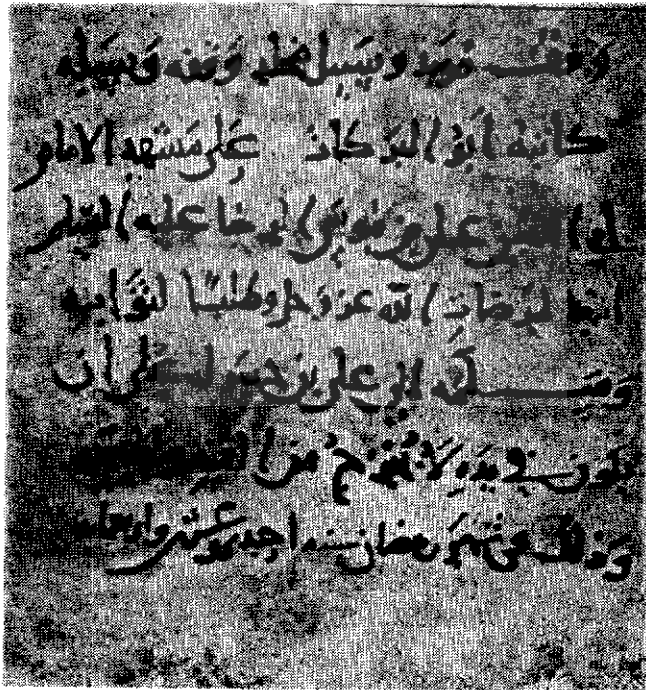 وقف مؤبد وسبيل مخلد وقفه وسبله
كاتبه أبو البركات على مشهد الامام
ابى الحسن على بن موسى الرضا عليه السلم
ابتغا لمرضات الله عز وجل وطلبا لثوابه
وسلمه الى على بن على أن
يكون فى يده لا يخرج من
وذلك فى شهر رمضان سنه احدى وعشرين واربعمايه